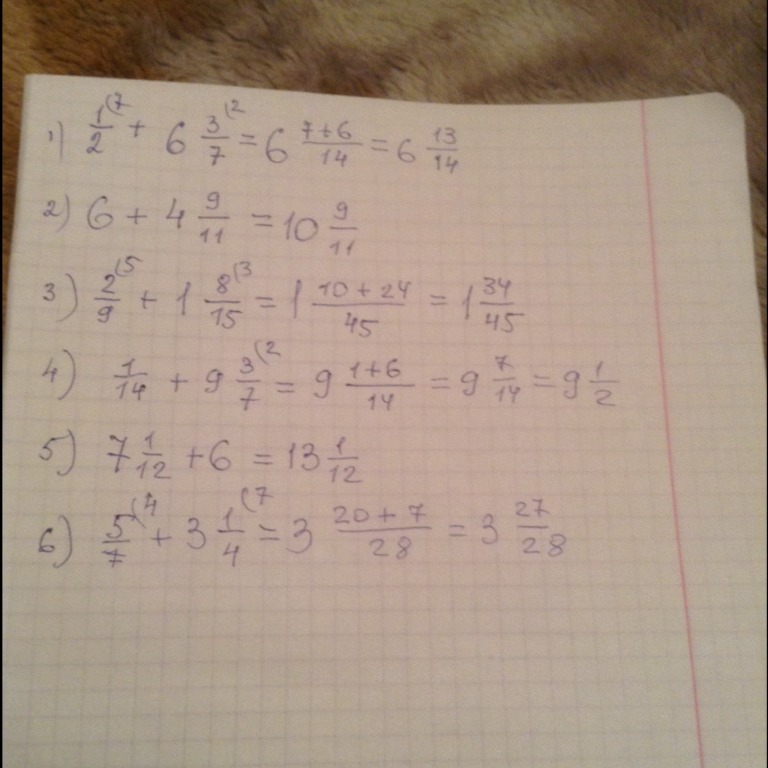 1) 1/2 (7 + 6 3/7 (2 = 6 7+6/14 = 6 13/14
2) 6 + 4 9/11 = 10 9/11
3) 2/9 (5 + 1 8/15 (3 = 1 10+24/45 = 1 34/45
4) 1/14 + 9 3/7 (2 = 9 1+6/14 = 9 7/14 = 9 1/2
5) 7 1/12 + 6 = 13 1/12
6) 5/7 (4 + 3 1/4 (7 = 3 20+7/28 = 3 27/28